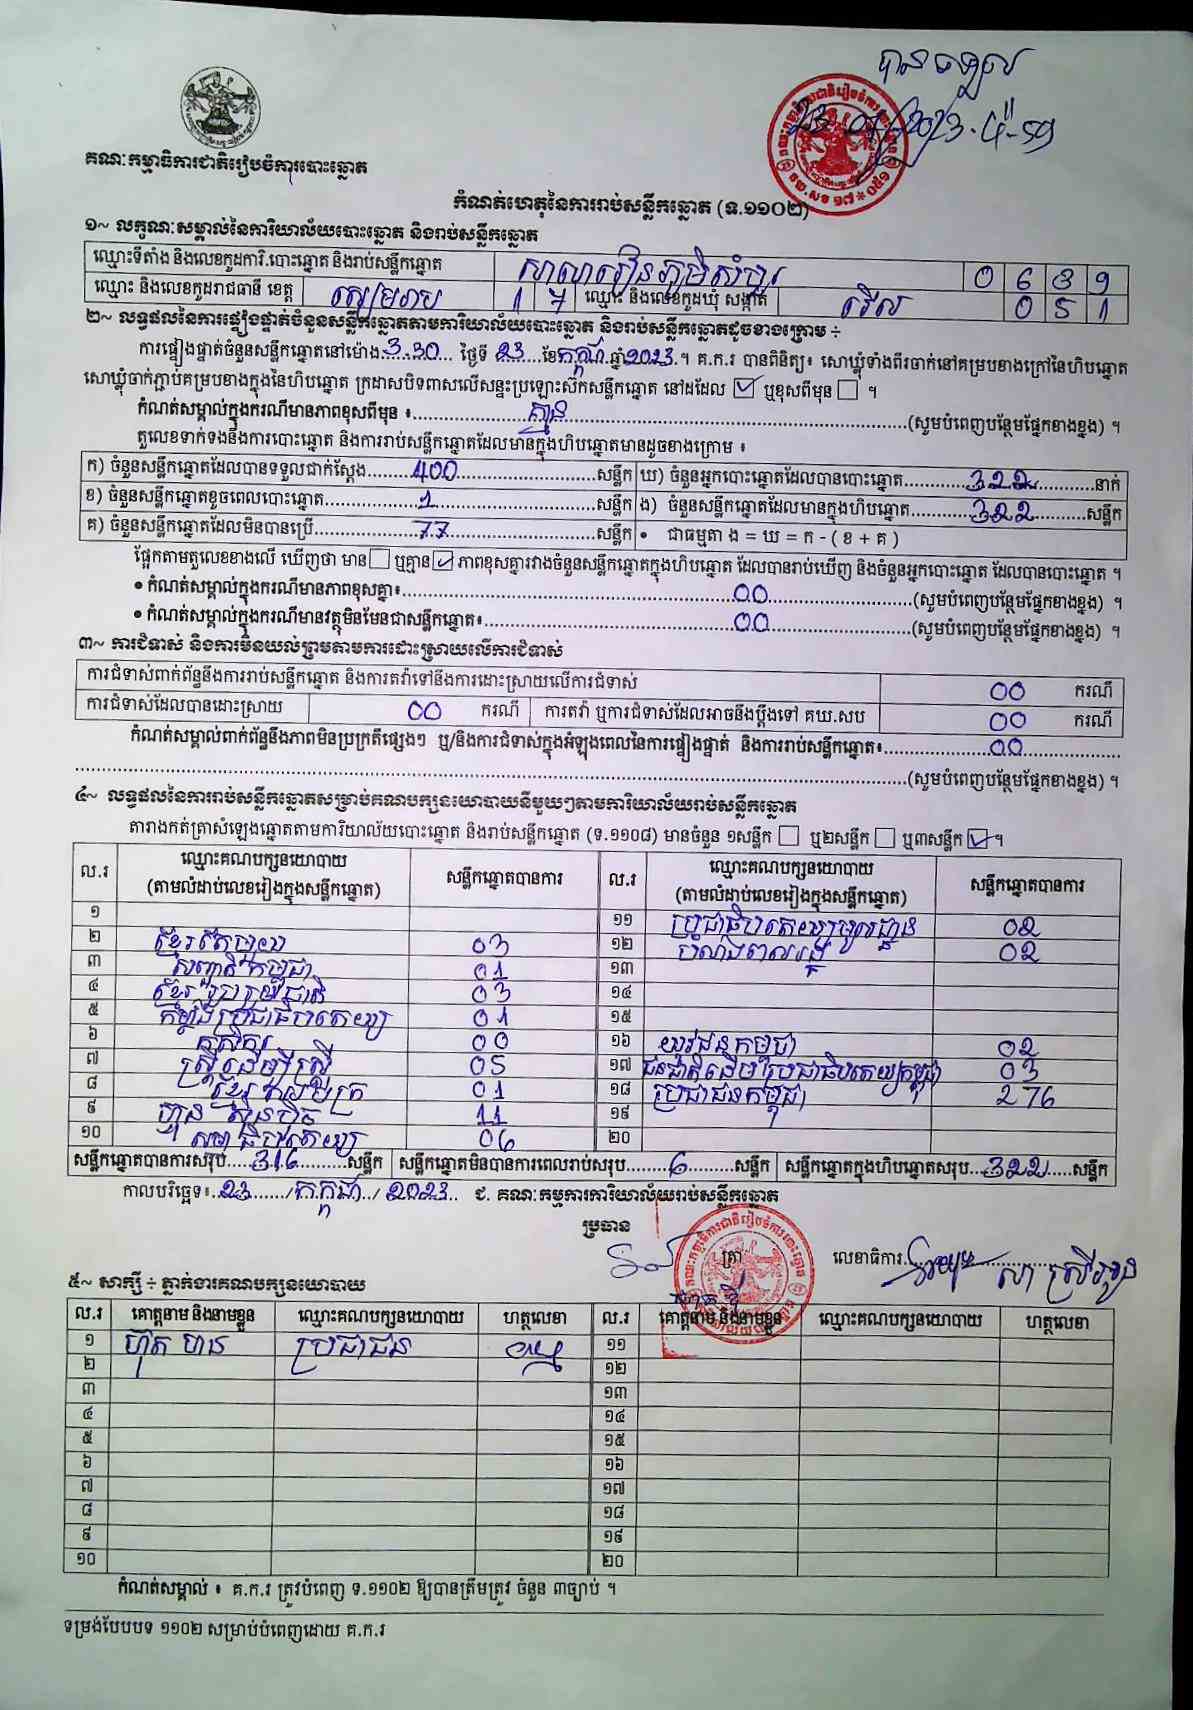 បានឃើញ
គណៈកម្មាធិការជាតិរៀបចំការបោះឆ្នោត
កំណត់ហេតុនៃការរាប់សន្លឹកឆ្នោត (ទ.១១០២)
១~ លក្ខណៈសម្គាល់នៃការិយាល័យបោះឆ្នោត និងរាប់សន្លឹកឆ្នោត
ឈ្មោះទីតាំង និងលេខកូដការិ.បោះឆ្នោត និងរាប់សន្លឹកឆ្នោត សាលារៀនភូមិសំបួរ 0 6 3 9
ឈ្មោះ និងលេខកូដរាជធានី ខេត្ត សៀមរាប 1 7 ឈ្មោះ និងលេខកូដឃុំ សង្កាត់ 0 5 1
២~ លទ្ធផលនៃការផ្ទៀងផ្ទាត់ចំនួនសន្លឹកឆ្នោតតាមការិយាល័យបោះឆ្នោត និងរាប់សន្លឹកឆ្នោតដូចខាងក្រោម ÷
ការផ្ទៀងផ្ទាត់ចំនួនសន្លឹកឆ្នោតនៅម៉ោង 3.30 ថ្ងៃទី 23 ខែ កក្កដា ឆ្នាំ 2023 ។ គ.ក.រ បានពិនិត្យ៖ សោឃ្លុំទាំងពីរចាក់នៅគម្របខាងក្រៅនៃហិបឆ្នោត
សោឃ្លុំចាក់ភ្ជាប់គម្របខាងក្នុងនៃហិបឆ្នោត ក្រដាសបិទពាសលើសន្ទះប្រឡោះស៊កសន្លឹកឆ្នោត នៅដដែល ☑ ឬខុសពីមុន ☐ ។
កំណត់សម្គាល់ក្នុងករណីមានភាពខុសពីមុន ៖ គ្មាន (សូមបំពេញបន្ថែមផ្នែកខាងខ្នង) ។
តួលេខទាក់ទងនឹងការបោះឆ្នោត និងការរាប់សន្លឹកឆ្នោតដែលមានក្នុងហិបឆ្នោតមានដូចខាងក្រោម ៖
ក) ចំនួនសន្លឹកឆ្នោតដែលបានទទួលជាក់ស្តែង 400 សន្លឹក ឃ) ចំនួនអ្នកបោះឆ្នោតដែលបានបោះឆ្នោត 322 នាក់
ខ) ចំនួនសន្លឹកឆ្នោតខូចពេលបោះឆ្នោត 1 សន្លឹក ង) ចំនួនសន្លឹកឆ្នោតដែលមានក្នុងហិបឆ្នោត 322 សន្លឹក
គ) ចំនួនសន្លឹកឆ្នោតដែលមិនបានប្រើ 77 សន្លឹក • ជាធម្មតា ង = ឃ = ក - ( ខ + គ )
ផ្អែកតាមតួលេខខាងលើ ឃើញថា មាន ☐ ឬគ្មាន ☑ ភាពខុសគ្នារវាងចំនួនសន្លឹកឆ្នោតក្នុងហិបឆ្នោត ដែលបានរាប់ឃើញ និងចំនួនអ្នកបោះឆ្នោត ដែលបានបោះឆ្នោត ។
• កំណត់សម្គាល់ក្នុងករណីមានភាពខុសគ្នា៖ 00 (សូមបំពេញបន្ថែមផ្នែកខាងខ្នង) ។
• កំណត់សម្គាល់ក្នុងករណីមានវត្ថុមិនមែនជាសន្លឹកឆ្នោត៖ 00 (សូមបំពេញបន្ថែមផ្នែកខាងខ្នង) ។
៣~ ការជំទាស់ និងការមិនយល់ព្រមតាមការដោះស្រាយលើការជំទាស់
ការជំទាស់ពាក់ព័ន្ធនឹងការរាប់សន្លឹកឆ្នោត និងការតវ៉ាទៅនឹងការដោះស្រាយលើការជំទាស់ 00 ករណី
ការជំទាស់ដែលបានដោះស្រាយ 00 ករណី ការតវ៉ា ឬការជំទាស់ដែលអាចនឹងប្តឹងទៅ គឃ.សប 00 ករណី
កំណត់សម្គាល់ពាក់ព័ន្ធនឹងភាពមិនប្រក្រតីផ្សេងៗ ឬ/និងការជំទាស់ក្នុងអំឡុងពេលនៃការផ្ទៀងផ្ទាត់ និងការរាប់សន្លឹកឆ្នោត៖ 00
(សូមបំពេញបន្ថែមផ្នែកខាងខ្នង) ។
៤~ លទ្ធផលនៃការរាប់សន្លឹកឆ្នោតសម្រាប់គណបក្សនយោបាយនីមួយៗតាមការិយាល័យរាប់សន្លឹកឆ្នោត
តារាងកត់ត្រាសំឡេងឆ្នោតតាមការិយាល័យបោះឆ្នោត និងរាប់សន្លឹកឆ្នោត (ទ.១១០៨) មានចំនួន ១សន្លឹក ☐ ឬ២សន្លឹក ☐ ឬ៣សន្លឹក ☑ ។
ល.រ ឈ្មោះគណបក្សនយោបាយ (តាមលំដាប់លេខរៀងក្នុងសន្លឹកឆ្នោត) សន្លឹកឆ្នោតបានការ ល.រ ឈ្មោះគណបក្សនយោបាយ (តាមលំដាប់លេខរៀងក្នុងសន្លឹកឆ្នោត) សន្លឹកឆ្នោតបានការ
១ ១១ ប្រជាធិបតេយ្យមូលដ្ឋាន 02
២ ខ្មែរតែមួយ 03 ១២ 02
៣ សញ្ជាតិកម្ពុជា 01 ១៣
៤ ខ្មែររួបរួមជាតិ 03 ១៤
៥ កម្លាំងប្រជាធិបតេយ្យ 01 ១៥
៦ កសិករ 00 ១៦ យុវជនកម្ពុជា 02
៧ ស្ត្រីដើម្បីស្ត្រី 05 ១៧ ជនជាតិដើមប្រជាធិបតេយ្យកម្ពុជា 03
៨ ខ្មែរអភិរក្ស 01 ១៨ ប្រជាជនកម្ពុជា 276
៩ ហ្វ៊ុនស៊ិនប៉ិច 11 ១៩
១០ សេរីធិបតេយ្យ 06 ២០
សន្លឹកឆ្នោតបានការសរុប 316 សន្លឹក សន្លឹកឆ្នោតមិនបានការពេលរាប់សរុប 6 សន្លឹក សន្លឹកឆ្នោតក្នុងហិបឆ្នោតសរុប 322 សន្លឹក
កាលបរិច្ឆេទ៖ 23 / កក្កដា / 2023 ជ. គណៈកម្មការការិយាល័យរាប់សន្លឹកឆ្នោត
ប្រធាន ត្រា លេខាធិការ
៥~ សាក្សី ÷ ភ្នាក់ងារគណបក្សនយោបាយ
ល.រ គោត្តនាម និងនាមខ្លួន ឈ្មោះគណបក្សនយោបាយ ហត្ថលេខា ល.រ គោត្តនាម និងនាមខ្លួន ឈ្មោះគណបក្សនយោបាយ ហត្ថលេខា
១ ហ៊ុត ហន ប្រជាជន ១១
២ ១២
៣ ១៣
៤ ១៤
៥ ១៥
៦ ១៦
៧ ១៧
៨ ១៨
៩ ១៩
១០ ២០
កំណត់សម្គាល់ ៖ គ.ក.រ ត្រូវបំពេញ ទ.១១០២ ឱ្យបានត្រឹមត្រូវ ចំនួន ៣ច្បាប់ ។
ទម្រង់បែបបទ ១១០២ សម្រាប់បំពេញដោយ គ.ក.រ